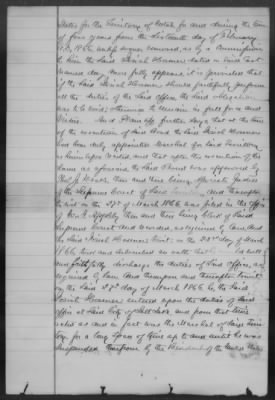 States for the Territory of Utah for and during the term
of four years from the sixteenth day of February
A.D. 1866 unless sooner removed, as by a Commission
to him the said Josiah Hosmer dated on said last
named day more fully appears, it is provided that
if the said Josiah Hosmer should faithfully perform
all the duties of the said Office, the said obligation
was to be void; otherwise to remain in full force and
Virtue. And Plaintiff further says that at the time
of the execution of said bond the said Josiah Hosmer
had been duly appointed Marshal for said Territory
as hereinbefore recited and that after the execution of the
same as aforesaid the said Bond was approved by
then and there being Associate Justice
of the Supreme Court of said Territory and thereupon
to wit on the 22d of March 1866 was filed in the Office
of then and there being Clerk of said
Supreme Court and recorded, as required by law, and
the said Josiah Hosmer did, on the 22d day of March
1866, take and subscribe an oath that he would
and faithfully discharge the duties of said Office, as
required by law and thereupon and thereafter to wit
on the said 22d day of March 1866 he, the said
Josiah Hosmer entered upon the duties of said
office at Salt Lake City and from that time
acted as and in fact was the Marshal of said Terri-
tory for a long space of time up to and until he was
suspended therefrom by the President of the United States